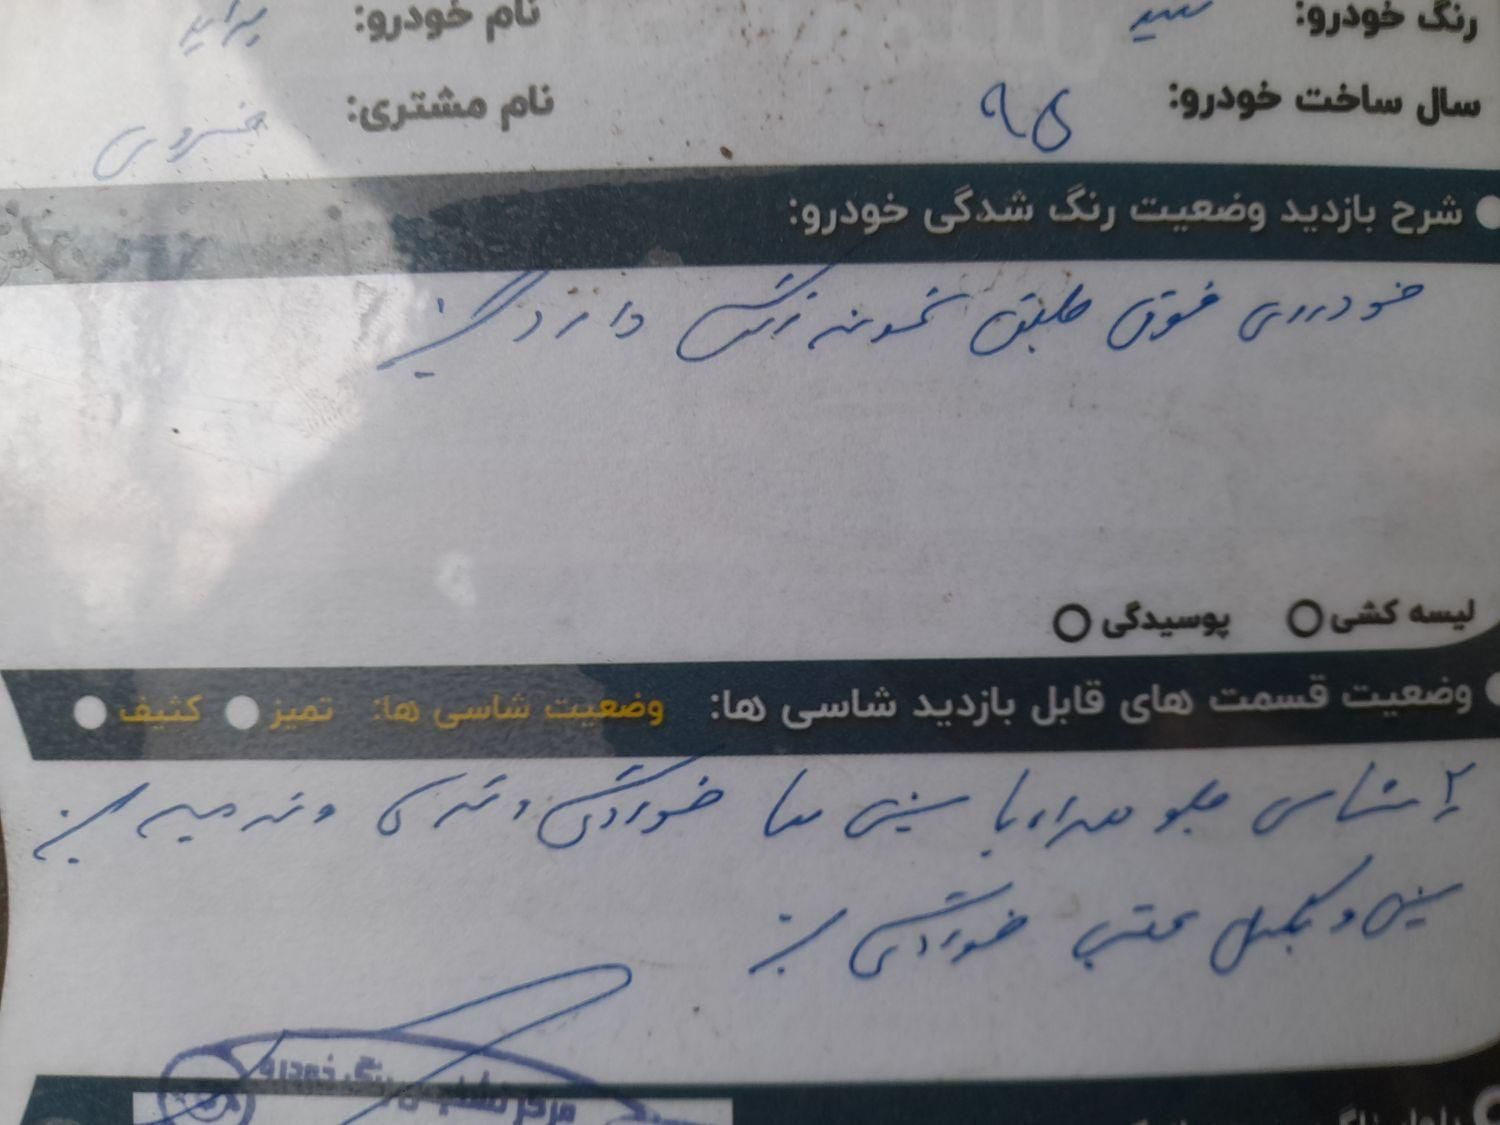 رنگ خودرو: سفید نام خودرو: پراید
سال ساخت خودرو: ۹۵ نام مشتری: خسروی
شرح بازدید وضعیت رنگ شدگی خودرو:
خودروی فوق طبق نمونه رنگ دارد
لیسه کشی پوسیدگی
وضعیت قسمت های قابل بازدید شاسی ها: وضعیت شاسی ها: تمیز کثیف
۲ شاسی جلو همراه با سینی ها خوردگی و
سینی و عقب خوردگی
مرکز تشخیص رنگ خودرو